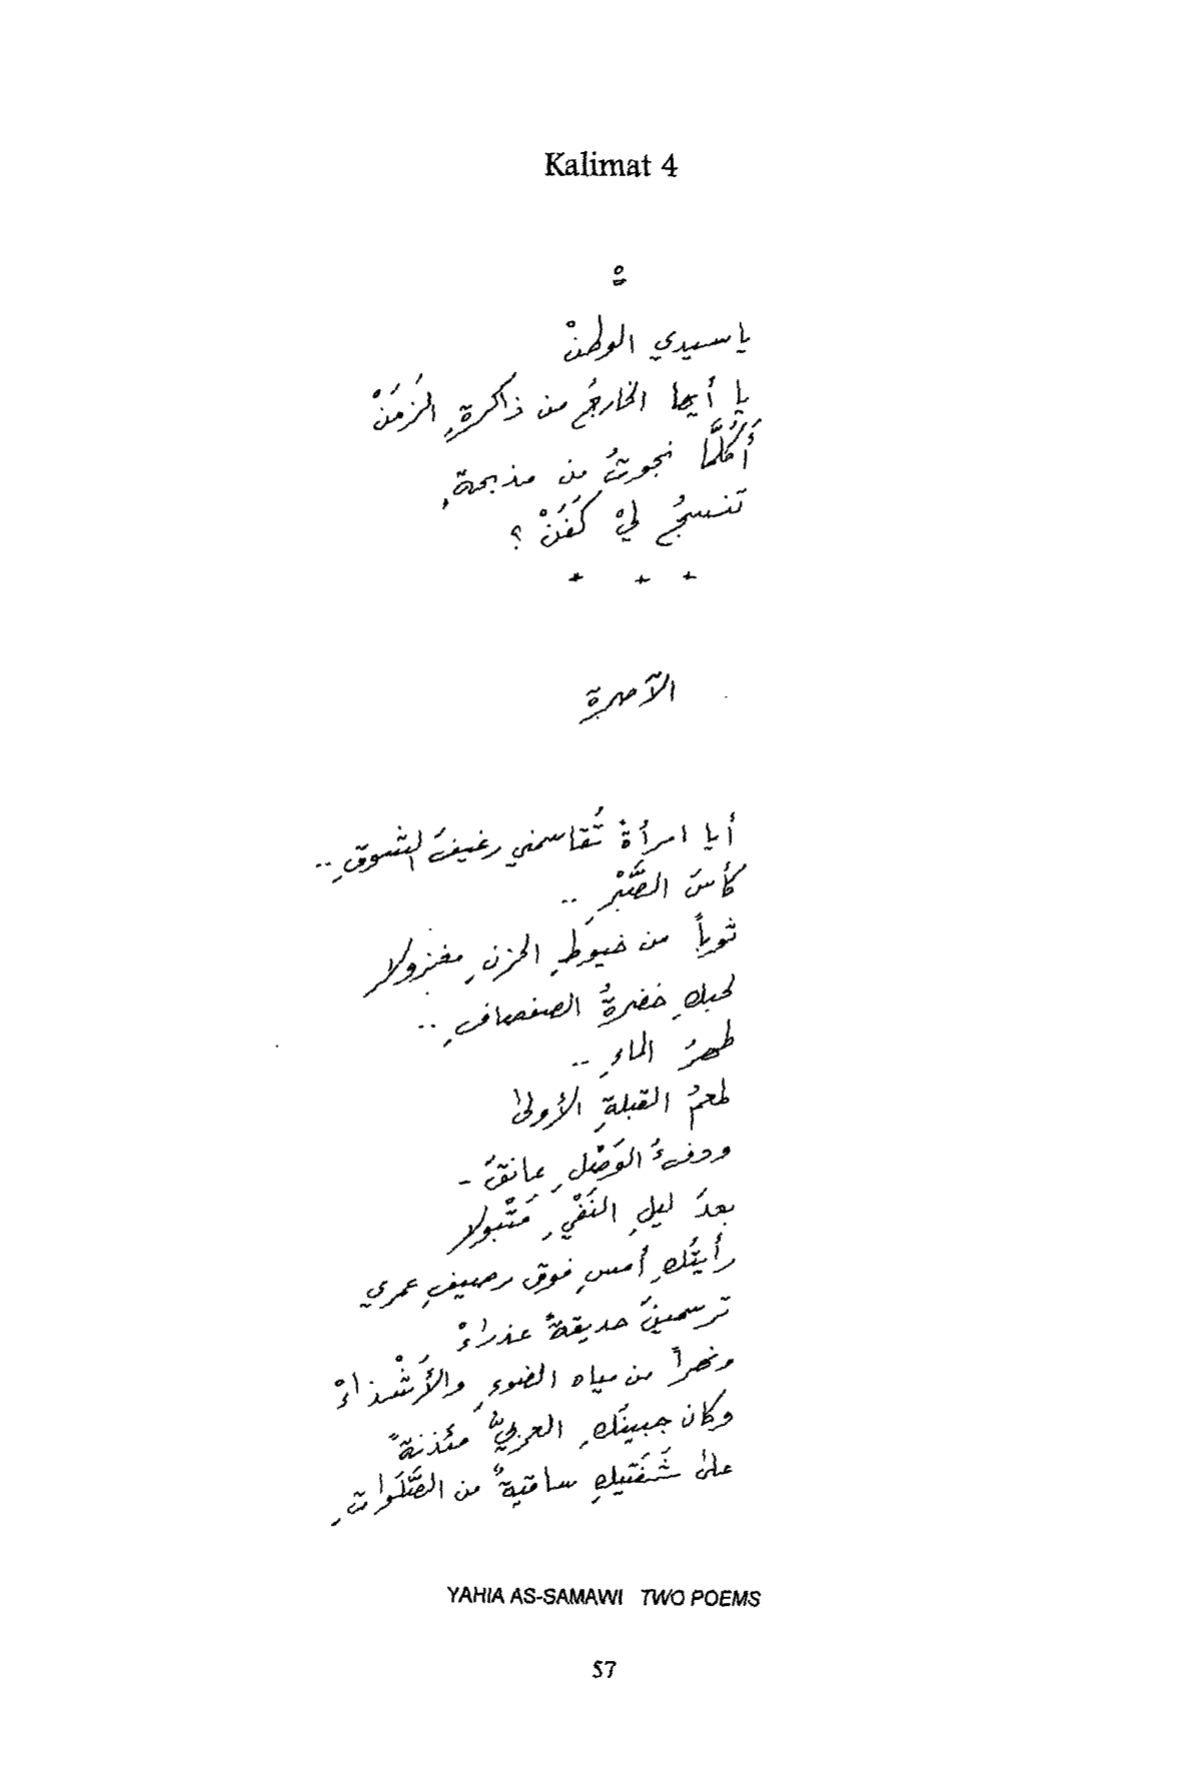 Kalimat 4
٥
يا سيدي الوطنْ
يا أيها الخارجُ من ذاكرةِ الزَمَنْ
أَكُلَّما نجوتُ من مذبحةٍ
تنسجُ ليْ كَفَنْ ؟
* * *
الآصرة
أيا امرأةً تُقاسمني رغيفَ الشوقِ ..
كأسَ الصَّبْرِ ..
ثوباً من خيوطِ الحزنِ مغزولا
لحبكِ خضرةُ الصفصافِ ..
طهرُ الماءِ ..
طعمُ القبلةِ الأولىٰ
ودفءُ الوَصْلِ عانقَ -
بعدَ ليلِ النَفْيِ مَتْبولا
رأيتُكِ أمسِ فوق رصيفِ عمري
ترسمينَ حديقةً عذراءْ
ونهراً من مياه الضوءِ والأَشْذاءْ
وكان جبينُكِ العربيُّ مئذنةً
علىٰ شَفَتيكِ ساقيةٌ من الصَّلَواتِ
YAHIA AS-SAMAWI TWO POEMS
57